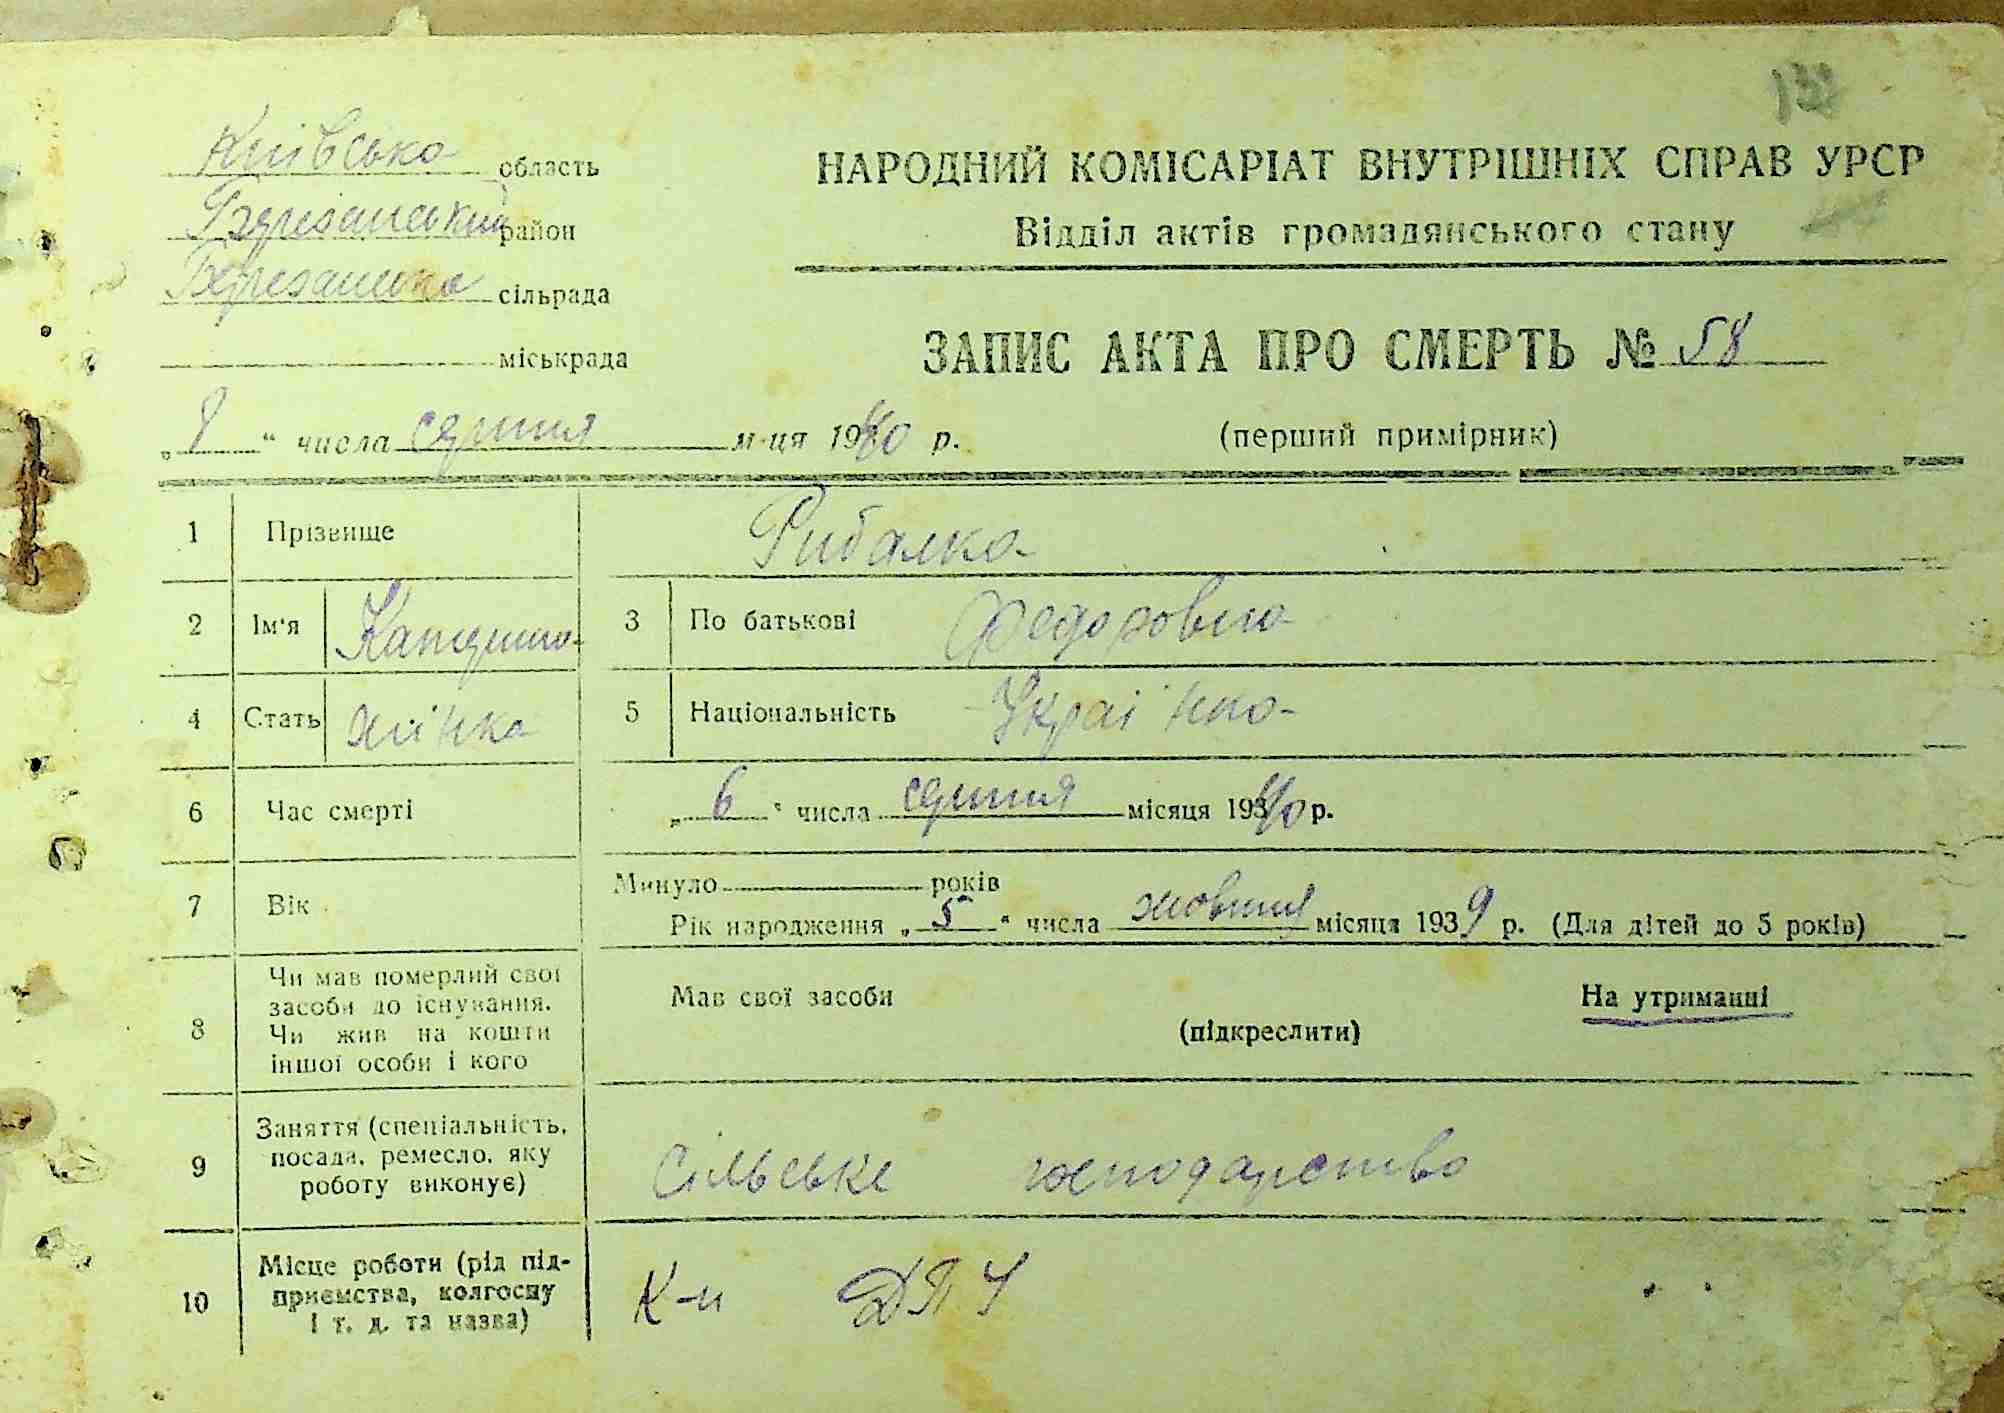 132
Київська область
Березанський район
Березанська сільрада
міськрада
НАРОДНИЙ КОМІСАРІАТ ВНУТРІШНІХ СПРАВ УРСР
Відділ актів громадянського стану
ЗАПИС АКТА ПРО СМЕРТЬ № 58
(перший примірник)
„ 8 “ числа серпня м-ця 1940 р.
1 Прізвище Рибалка
2 Ім'я Катерина 3 По батькові Федоровна
4 Стать жінка 5 Національність Українка
6 Час смерті „ 6 “ числа серпня місяця 1940 р.
7 Вік Минуло років
Рік народження „ 5 “ числа жовтня місяця 1939 р. (Для дітей до 5 років)
8 Чи мав померлий свої
засоби до існування.
Чи жив на кошти
іншої особи і кого
Мав свої засоби (підкреслити) На утриманні
9 Заняття (спеціальність,
посада, ремесло, яку
роботу виконує)
Сільське господарство
10 Місце роботи (рід під-
приємства, колгоспу
і т. д. та назва)
К-п ДПУ